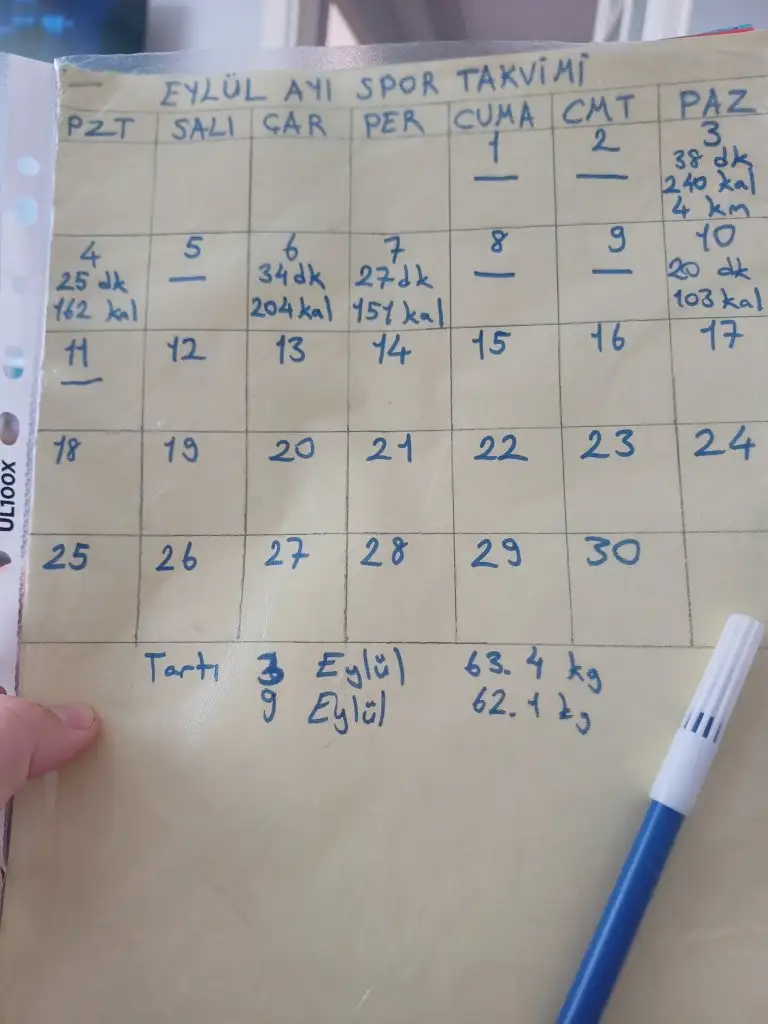 EYLÜL AYI SPOR TAKVİMİ
PZT SALI ÇAR PER CUMA CMT PAZ
1 2 3
— — 38 dk
240 kal
4 km
4 5 6 7 8 9 10
25 dk — 34 dk 27 dk — — 20 dk
162 kal 204 kal 151 kal 103 kal
11 12 13 14 15 16 17
—
18 19 20 21 22 23 24
25 26 27 28 29 30
Tartı 3 Eylül 63.4 kg
9 Eylül 62.1 kg
UL100X